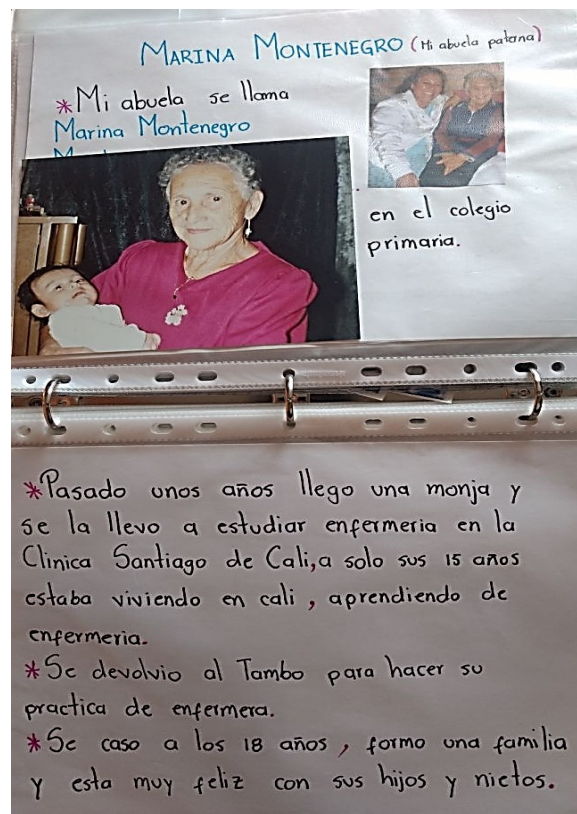 MARINA MONTENEGRO (Mi abuela paterna)
*Mi abuela se llama
Marina Montenegro
en el colegio
primaria.
*Pasado unos años llego una monja y
se la llevo a estudiar enfermeria en la
Clinica Santiago de Cali, a solo sus 15 años
estaba viviendo en cali, aprendiendo de
enfermeria.
*Se devolvio al Tambo para hacer su
practica de enfermera.
*Se caso a los 18 años, formo una familia
y esta muy feliz con sus hijos y nietos.